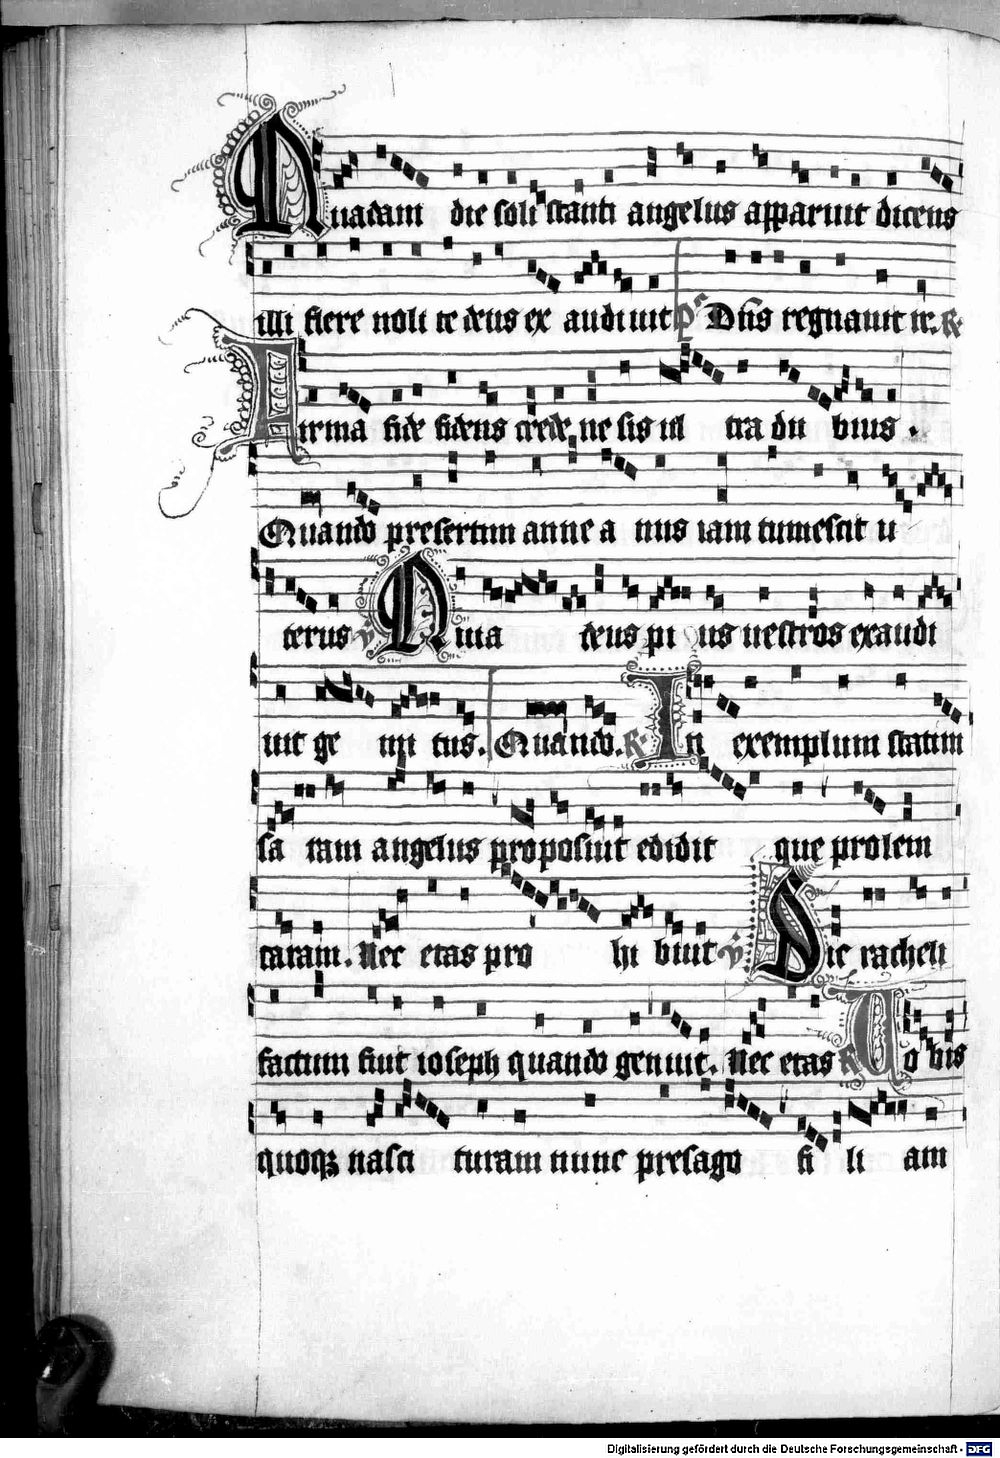 Quadam die soli stanti angelus apparuit dicens
illi flere noli te deus ex audiuit Ps Dñs regnauit ir. R
Firma fide fidens crede ne sis ul tra du bius .
Quando presertim anne a nus iam tumescit u
terus V Quia deus pi us uestros exaudi
uit ge mi tus. Quando. R In exemplum statim
sa ram angelus proposuit edidit que prolem
caram. Nec etas pro hi buit V Sic racheli
factum fiut ioseph quando genuit. Nec etas R Uo bis
quoqz nasci turam nunc presago fi li am
Digitalisierung gefördert durch die Deutsche Forschungsgemeinschaft - DFG